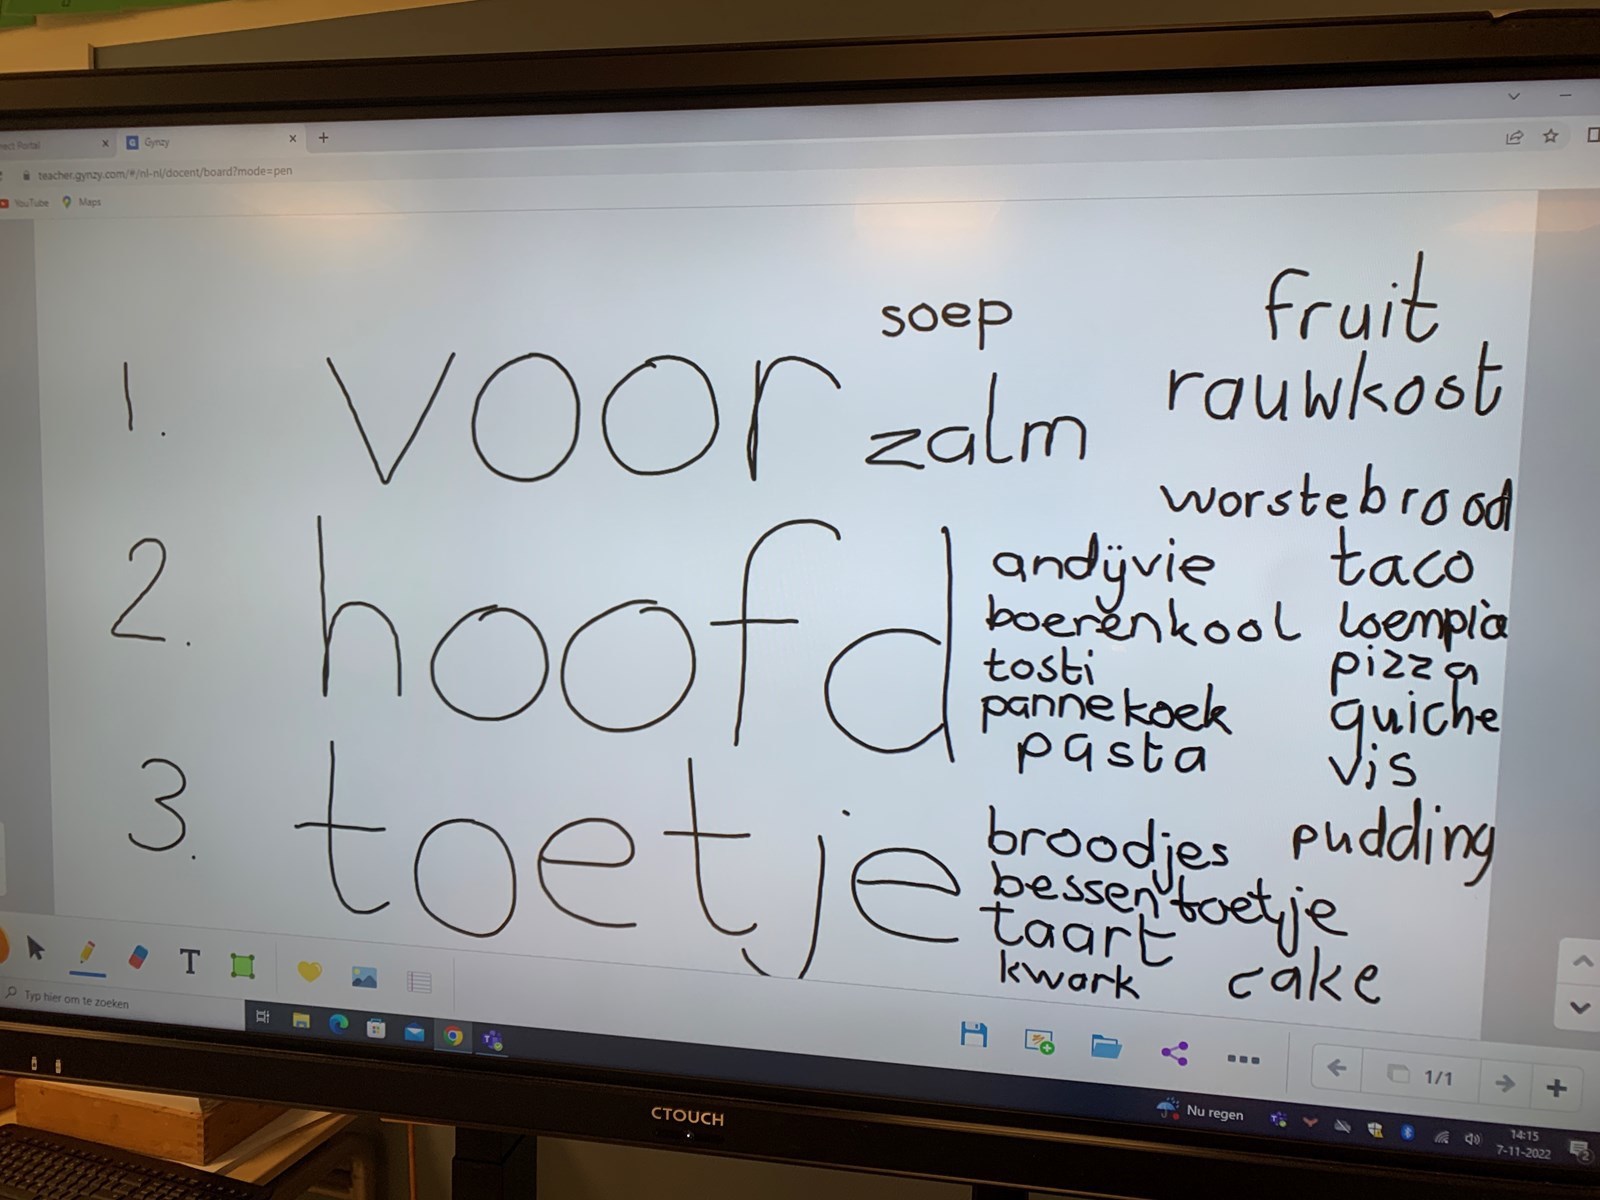 nect Portal
Gynzy
teacher.gynzy.com/#/nl-nl/docent/board?mode=pen
YouTube Maps
soep fruit
1. voor zalm rauwkost
worstebrood
2. hoofd andijvie taco
boerenkool loempia
tosti pizza
pannekoek quiche
pasta vis
3. toetje broodjes pudding
bessentoetje
taart
kwark cake
T
Typ hier om te zoeken
1/1
CTOUCH
Nu regen
14:15
7-11-2022
2